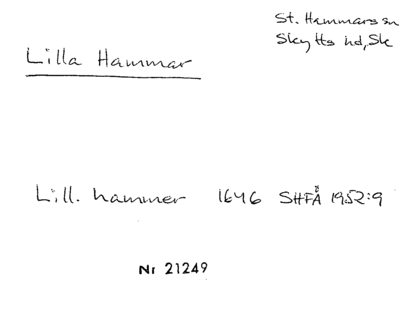 St. Hammars sn
Skytts hd, Sk
Lilla Hammar
Lill. hammer 1646 SHFÅ 1952:9
Nr 21249